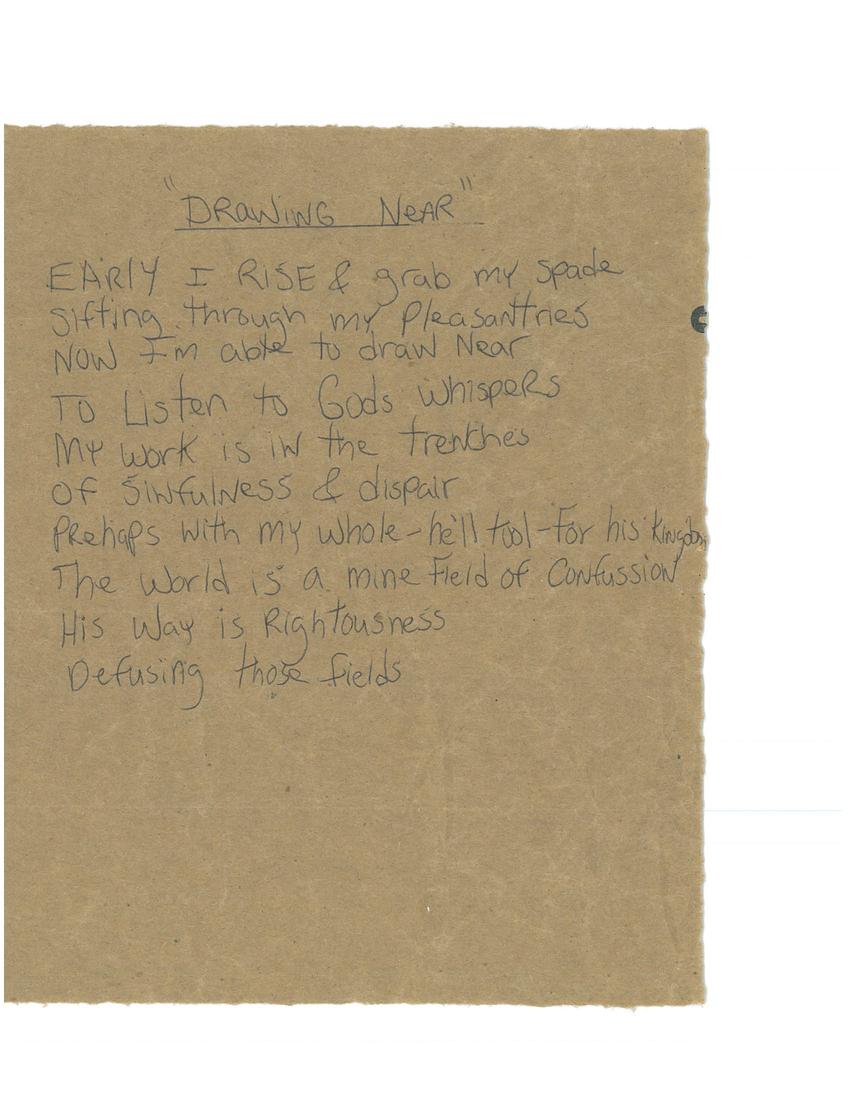 "DRAWING NeAR"
EARlY I RISE & grab my spade
Sifting through my Pleasantries
NOW I'm able to draw Near
TO Listen to Gods whispeRs
My work is iN the trenches
OF SiNfulNess & dispair
PRehaps with my whole-he'll tool-For his Kingdom
The World is a mine Field of CoNfussioN
His Way is Rightousness
Defusing those fields